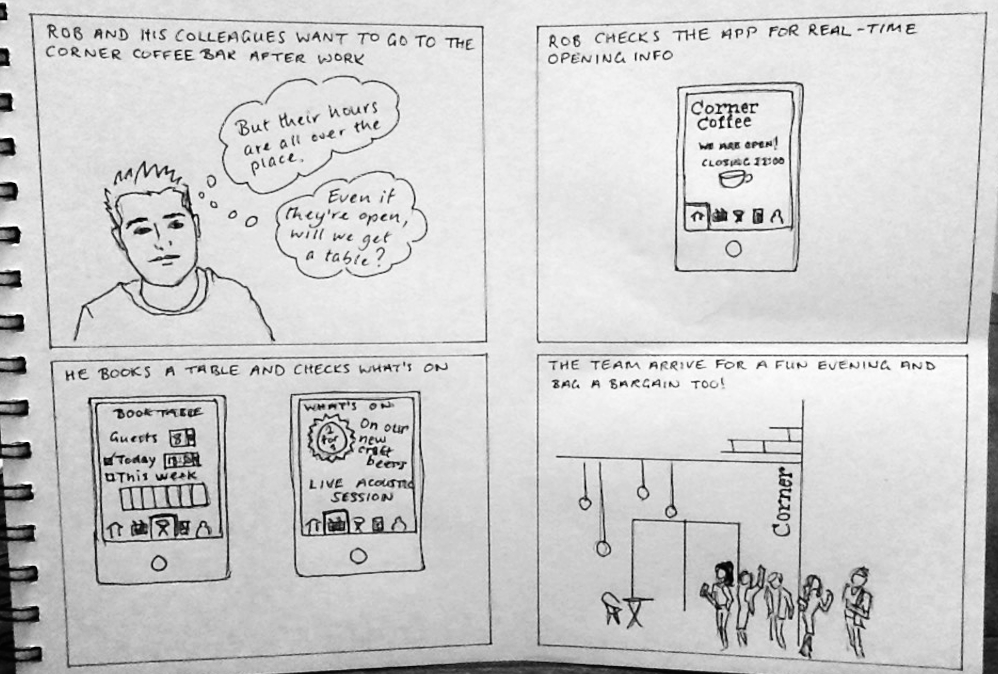 ROB AND HIS COLLEAGUES WANT TO GO TO THE
CORNER COFFEE BAR AFTER WORK
But their hours
are all over the
place.
Even if
they're open,
will we get
a table?
ROB CHECKS THE APP FOR REAL-TIME
OPENING INFO
Corner
Coffee
WE ARE OPEN!
CLOSING 22:00
HE BOOKS A TABLE AND CHECKS WHAT'S ON
BOOK TABLE
Guests 8
Today
This week
WHAT'S ON:
2
for
1
On our
new
craft
beers
LIVE ACOUSTIC
SESSION
THE TEAM ARRIVE FOR A FUN EVENING AND
BAG A BARGAIN TOO!
Corner